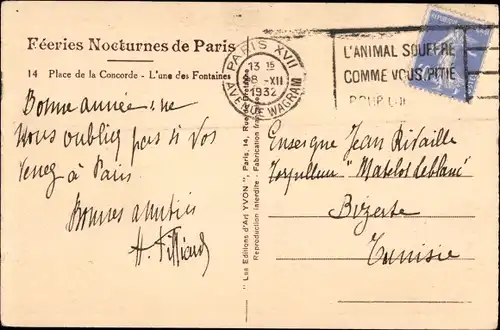 Féeries Nocturnes de Paris
14 Place de la Concorde - L'une des Fontaines
Bonne année, ne
nous oubliez pas si vos
venez à Paris
Bonnes amitiés
PARIS XVII
13 15
8 -XII
1932
AVENUE WAGRAM
L'ANIMAL SOUFFRE
COMME VOUS PITIÉ
POUR LUI
"Les Editions d'Art YVON", Paris, 14, Rue de Bretagne
Reproduction interdite - Fabrication française
Enseigne Jean Ridaille
Torpilleur "Matelot Leblanc"
Bizerte
Tunisie